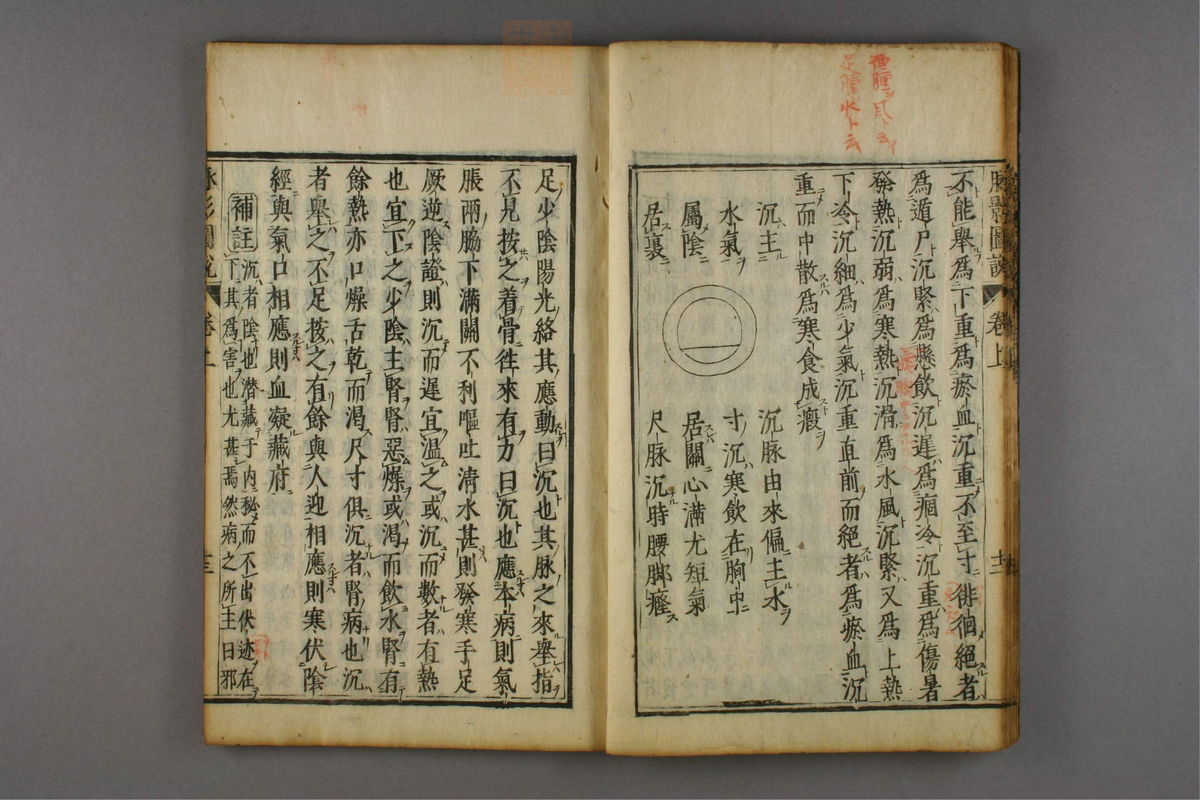 脉影圖說 卷上 十二
不能舉爲下重爲瘀血沉重不至寸徘徊絕者
爲遁尸沉緊爲懸飲沉遲爲痼冷沉重爲傷暑
發熱沉弱爲寒熱沉滑爲水風沉緊又爲上熱
下冷沉細爲少氣沉重直前而絕者爲瘀血沉
重而中散爲寒食成瘕
沉主
水氣
屬陰
居裏
沉脉由來偏主水
寸沉寒飲在胸中
居關心滿尤短氣
尺脉沉時腰脚癢
足少陰陽光絡其應動曰沉也其脉之來舉指
不見按之着骨往來有力曰沉也應本病則氣
脹兩脇下滿關不利嘔吐清水甚則發寒手足
厥逆陰證則沉而遲宜溫之或沉而數者有熱
也宜下之少陰主腎腎惡燥或渴而飲水腎有
餘熱亦口燥舌乾而渴尺寸俱沉者腎病也沉
者舉之不足按之有餘與人迎相應則寒伏陰
經與氣口相應則血凝藏府
補註 沉者陰也潛藏于内秘而不出伏迹在
下其爲害也尤甚焉然病之所主曰邪